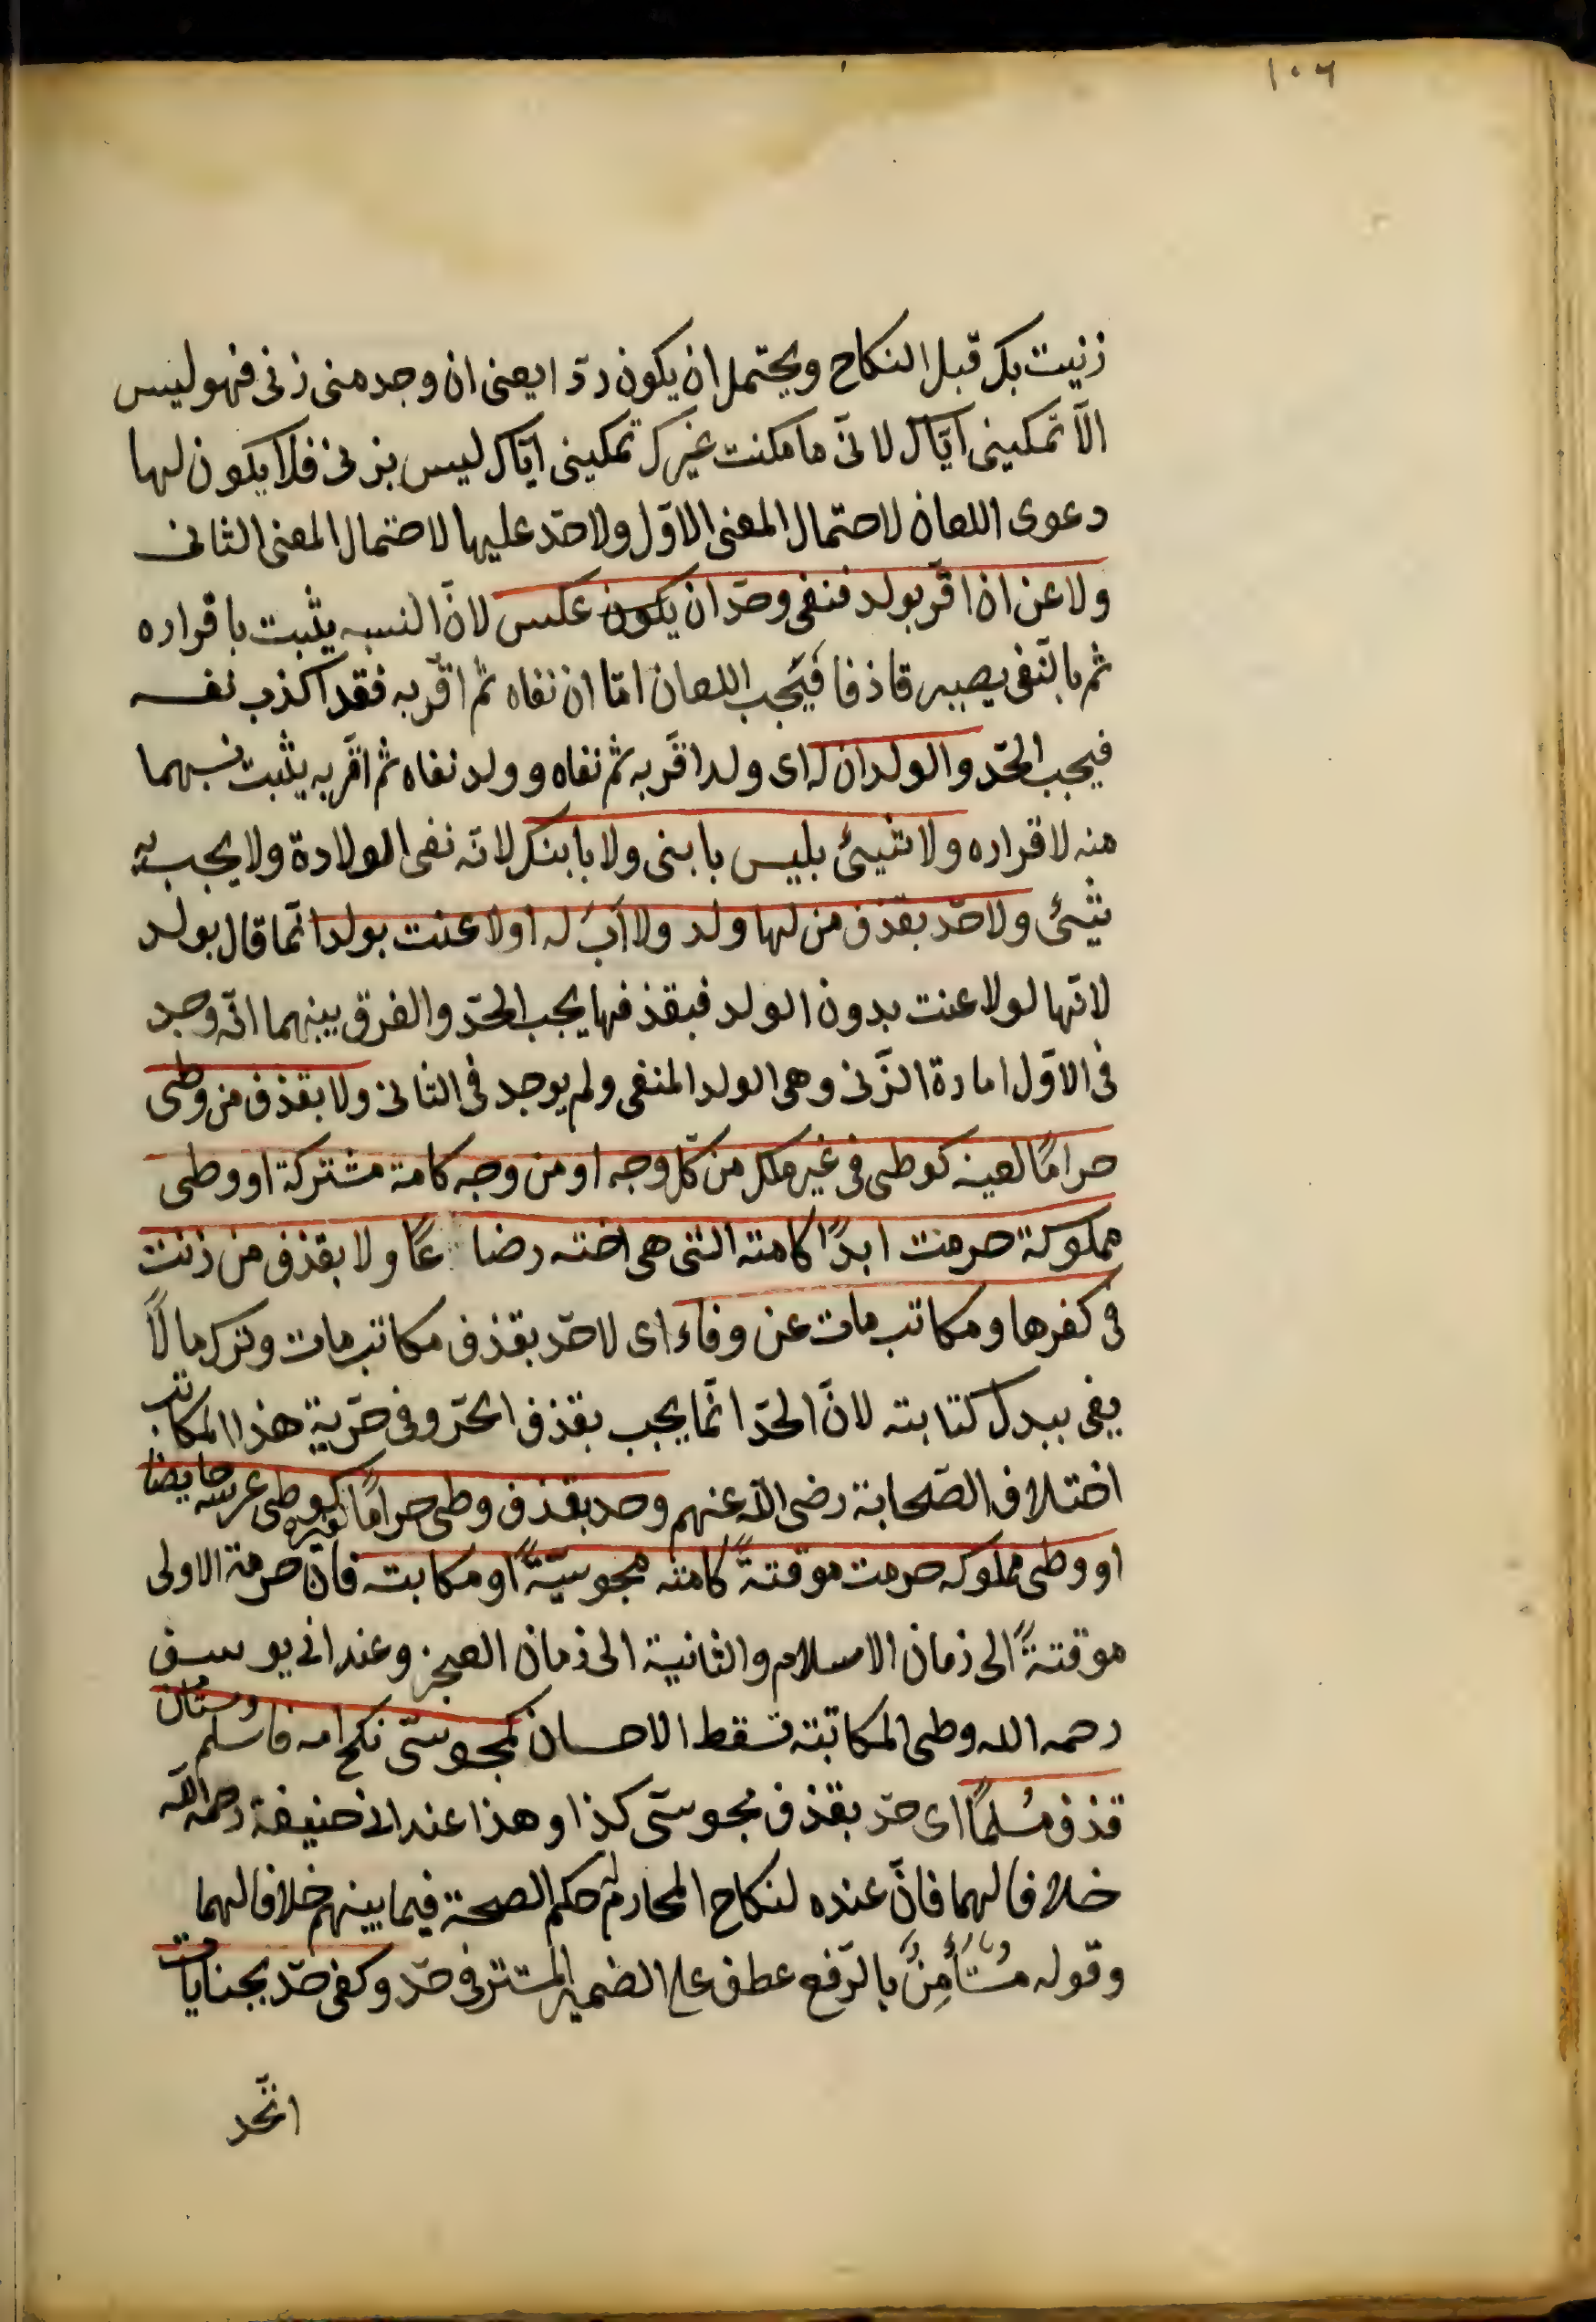 ١٠٦
زنيت بك قبل النكاح ويحتمل ان يكون ردّا يعنى ان وجد منى زنى فهو ليس
الّا تمكينى ايّاك لانّى ما مكنت غيرك تمكينى ايّاك ليس بزنى فلا يكون لها
دعوى اللعان لاحتمال المعنى الاوّل ولا حدّ عليها لاحتمال المعنى الثانى
ولاعن ان اقرّ بولد فنفى وحدّ ان يكون عكس لانّ النسب يثبت باقراره
ثم بالنّفى يصير قاذفا فيَجب اللعان امّا ان نفاه ثم اقرّ به فقد اكذب نفسه
فيجب الحدّ والولدان له اى ولد اقرّ به ثم نفاه وولد نفاه ثم اقرّ به يثبت نسبهما
منه لاقراره ولا شيئ بليس بابنى ولا بابنك لانّه نفى الولادة ولا يجب به
شيئ ولا حدّ بقذف من لها ولد ولا اَبَ له او لاعنت بولد انّما قال بولد
لانّها لو لاعنت بدون الولد فبقذفها يجب الحدّ والفرق بينهما انّه وجد
فى الاوّل امارة الزّنى وهى الولد المنفى ولم يوجد فى الثانى ولا بقذف من وطى
حرامًا لعينه كوطى فى غير ملك من كلّ وجه او من وجه كامة مشتركة او وطى
مملوكة حرمت ابدًا كامته التى هى اخته رضا عًا ولا بقذف من زنت
فى كفرها ومكاتب مات عن وفاء اى لا حدّ بقذف مكاتب مات وترك مالًا
يفى ببدل كتابته لانّ الحدّ انّما يجب بقذف الحرّ وفى حرّية هذا المكاتب
اختلاف الصّحابة رضى الله عنهم وحد بقذف وطى حرامًا لغيره كوطى عرسه حايضا
او وطى مملوكه حرمت موقتةً كامته مجوسيّةً او مكابته فان حرمة الاولى
موقتةً الى زمان الاسلام والثانية الى زمان العجز وعند ابى يوسف
رحمه الله وطى المكاتبة تسقط الاحسان كمجوسىّ نكح امه فاسلم ومستامن
قذف مُسلمًا اى حدّ بقذف مجوسىّ كذا وهذا عند ابى حنيفة رحمه الله
خلافا لهما فانّ عنده لنكاح المحارم له حكم الصحة فيما بينهم خلافا لهما
وقوله مُستأمِنٌ بالرّفع عطف على الضمير المستتر فى حدّ وكفى حدّ بجنايات
اتّحد